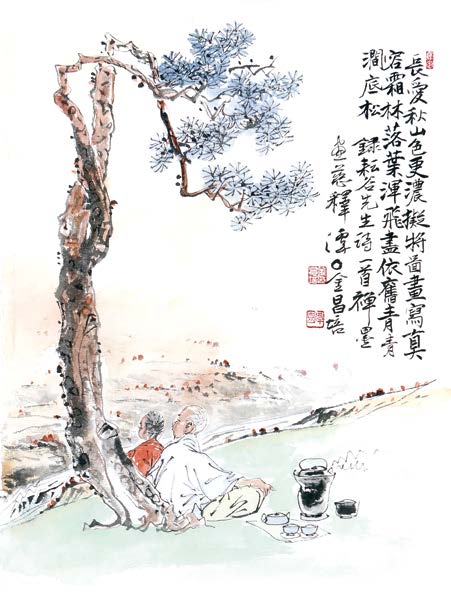 長愛秋山色更濃擬將圖畫寫真
容霜林落葉渾飛盡依舊青青
澗底松 錄耘谷先生詩一首禪墨
釋 潭○金昌培